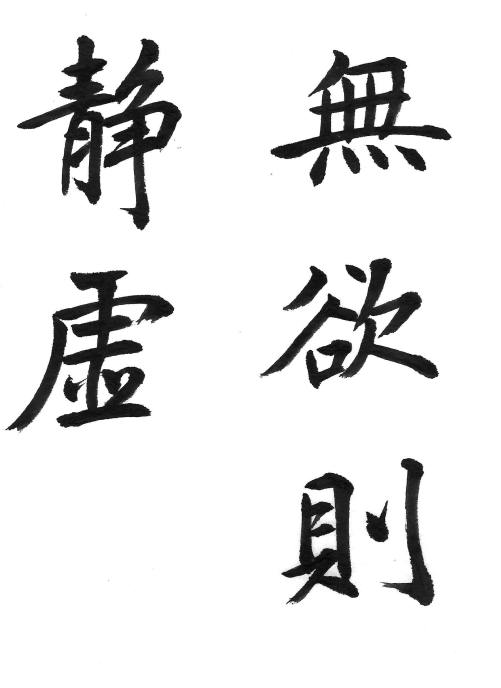 無欲則
静虚